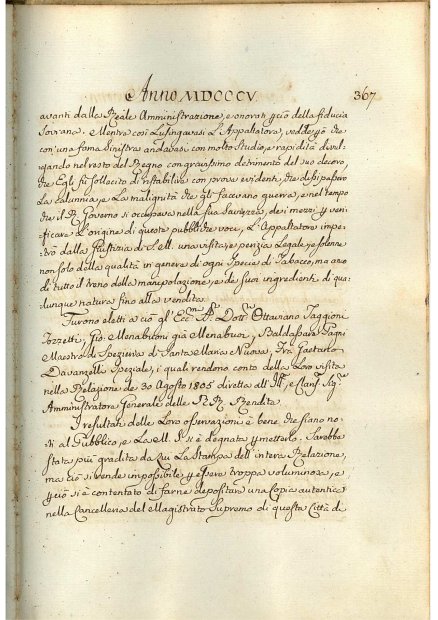 Anno MDCCCV
367
avanti dalla Reale Amministrazione, e onorati p ciò della fiducia
Sovrana. Mentre così Lusingavasi L'Appaltatore, vedde però che
con una foma sinistra andavasi con molto Studio, e rapidità divul-
gando nel resto del Regno con gravissimo detrimento del suo decoro,
che Egli fù sollecito di ristabilire con prove evidenti, che dissipassero
La calunnia, e La malignità che gli facevano guerra, e nel tempo
che il R. Governo si occupava nella sua Saviezza, dei mezzi p veri-
ficare L'origine di queste pubbliche voci, L'Appaltatore impe-
trò dalla Giustizia di S. M. una visita, e perizia Legale, e solenne
non solo della qualità in genere di ogni specie di Tabacco, ma anco
di tutto il treno della manipolazione, e de suoi ingredienti di qua-
lunque natura fino alla vendita.
Furono eletti a ciò gl' Ecc.mi SS.ri Dott.ri Ottaviano Taggioni
Tozzetti, Gio. Menabuoni già Menabuoi, Baldassare Pagni
Maestro di Spezieria di Santa Maria Nuova, Fra Gaetano
Speziale, i quali rendono conto della Loro visita
nella Relazione de 30 Agosto 1805 diretta all' Ill. e Clariss. Sig.
Amministratore Generale delle RR. Rendite.
I resultati delle Loro osservazioni è bene, che siano no-
ti al Pubblico, e La M. S. si è degnata pmetterlo. Sarebbe
stata più gradita da Lui La Stampa dell'intera Relazione,
ma ciò si rende impossibile p essere troppo voluminosa, e
p ciò si è contentato di farne depositare una Copia autentica
nella Cancelleria del Magistrato Supremo di questa Città di